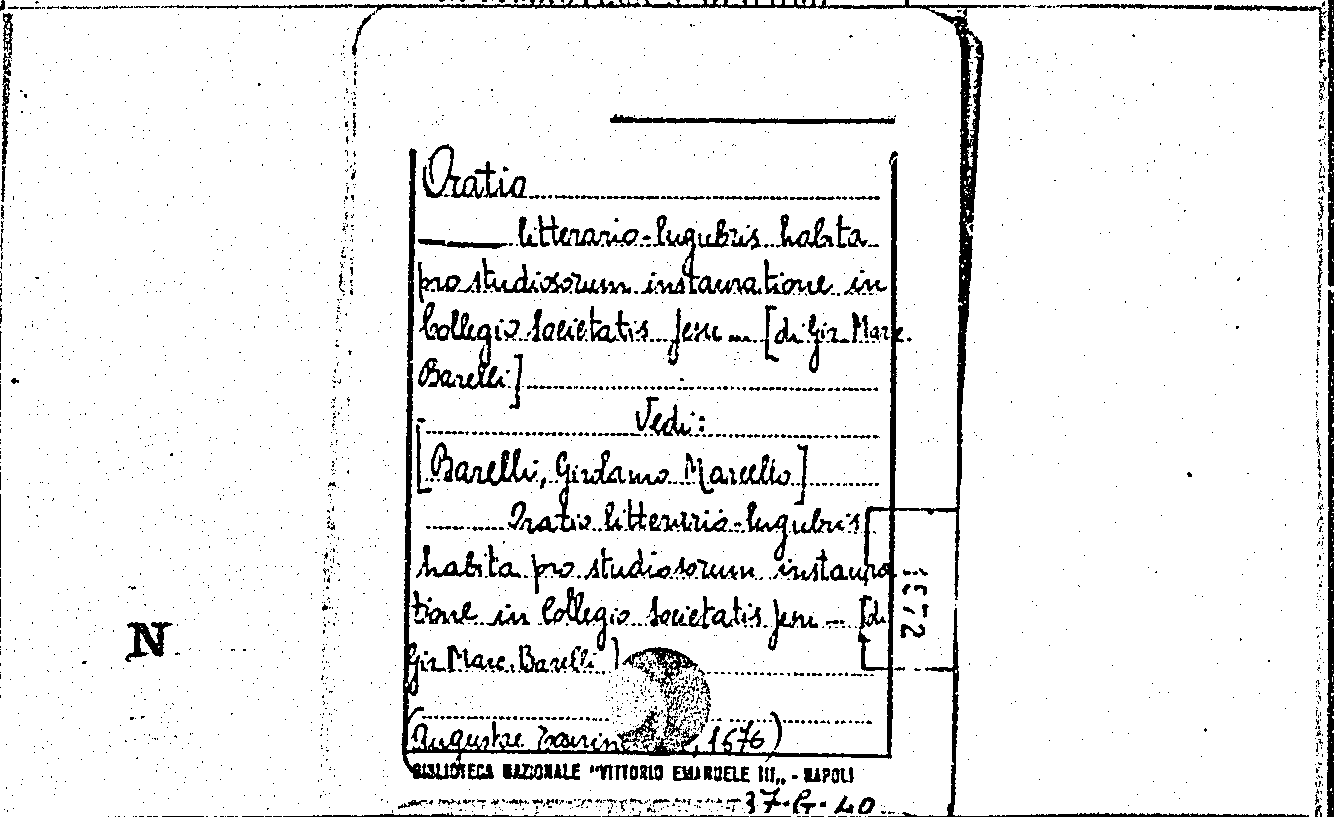 Oratio
litterario-lugubris habita
pro studiosorum instauratione in
Collegio Societatis Jesu ... [di Gir. Marc.
Barelli]
Vedi:
[Barelli, Girolamo Marcello]
Oratio litterario-lugubris
habita pro studiosorum instaura-
tione in Collegio Societatis Jesu ... [di
Gir. Marc. Barelli]
(Augustae , 1676)
BIBLIOTECA NAZIONALE "VITTORIO EMANUELE III„ - NAPOLI
37-G-40
1372
N